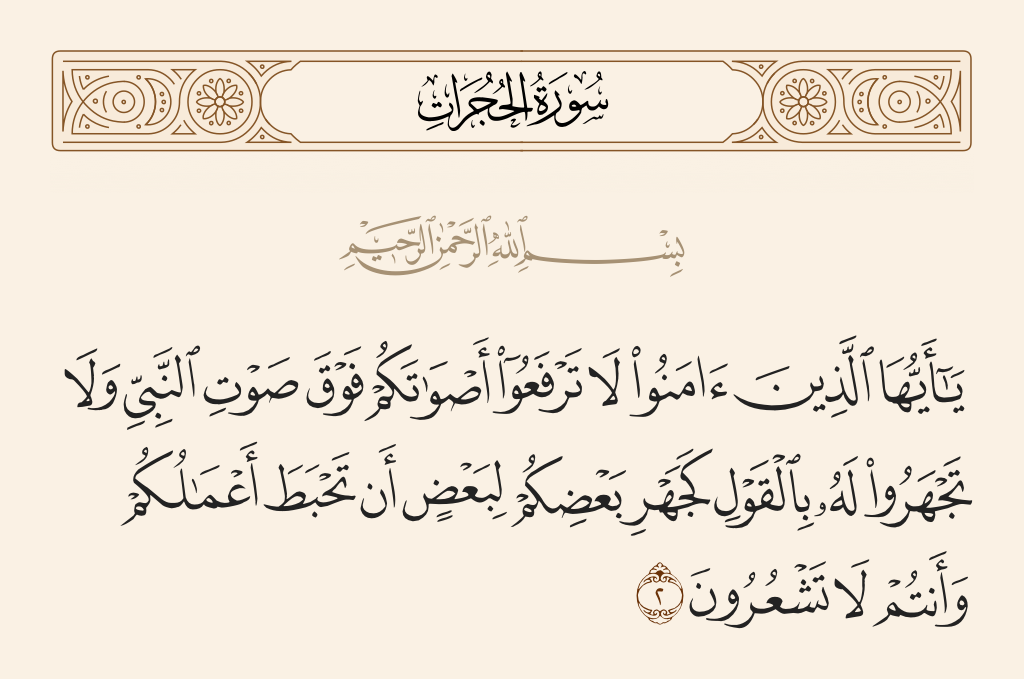 سُورَةُ الحُجُرَاتِ
بِسْمِ ٱللَّهِ ٱلرَّحْمَٰنِ ٱلرَّحِيمِ
يَـٰٓأَيُّهَا ٱلَّذِينَ ءَامَنُوا۟ لَا تَرْفَعُوٓا۟ أَصْوَٰتَكُمْ فَوْقَ صَوْتِ ٱلنَّبِىِّ وَلَا
تَجْهَرُوا۟ لَهُۥ بِٱلْقَوْلِ كَجَهْرِ بَعْضِكُمْ لِبَعْضٍ أَن تَحْبَطَ أَعْمَـٰلُكُمْ
وَأَنتُمْ لَا تَشْعُرُونَ ٢